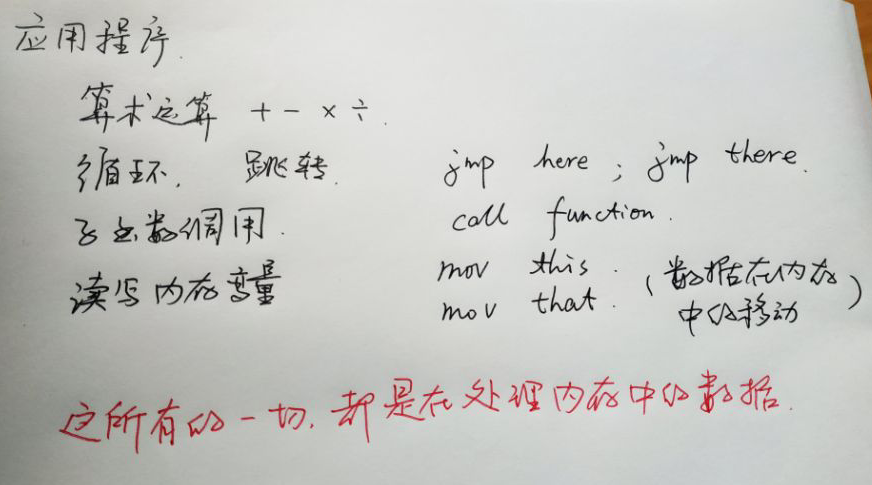 应用程序.
算术运算 + - × ÷.
循环. 跳转. jmp here ; jmp there.
子函数调用. call function.
读写内存变量 mov this. (数据在内存
mov that. 中的移动)
这所有的一切, 都是在处理内存中的数据.